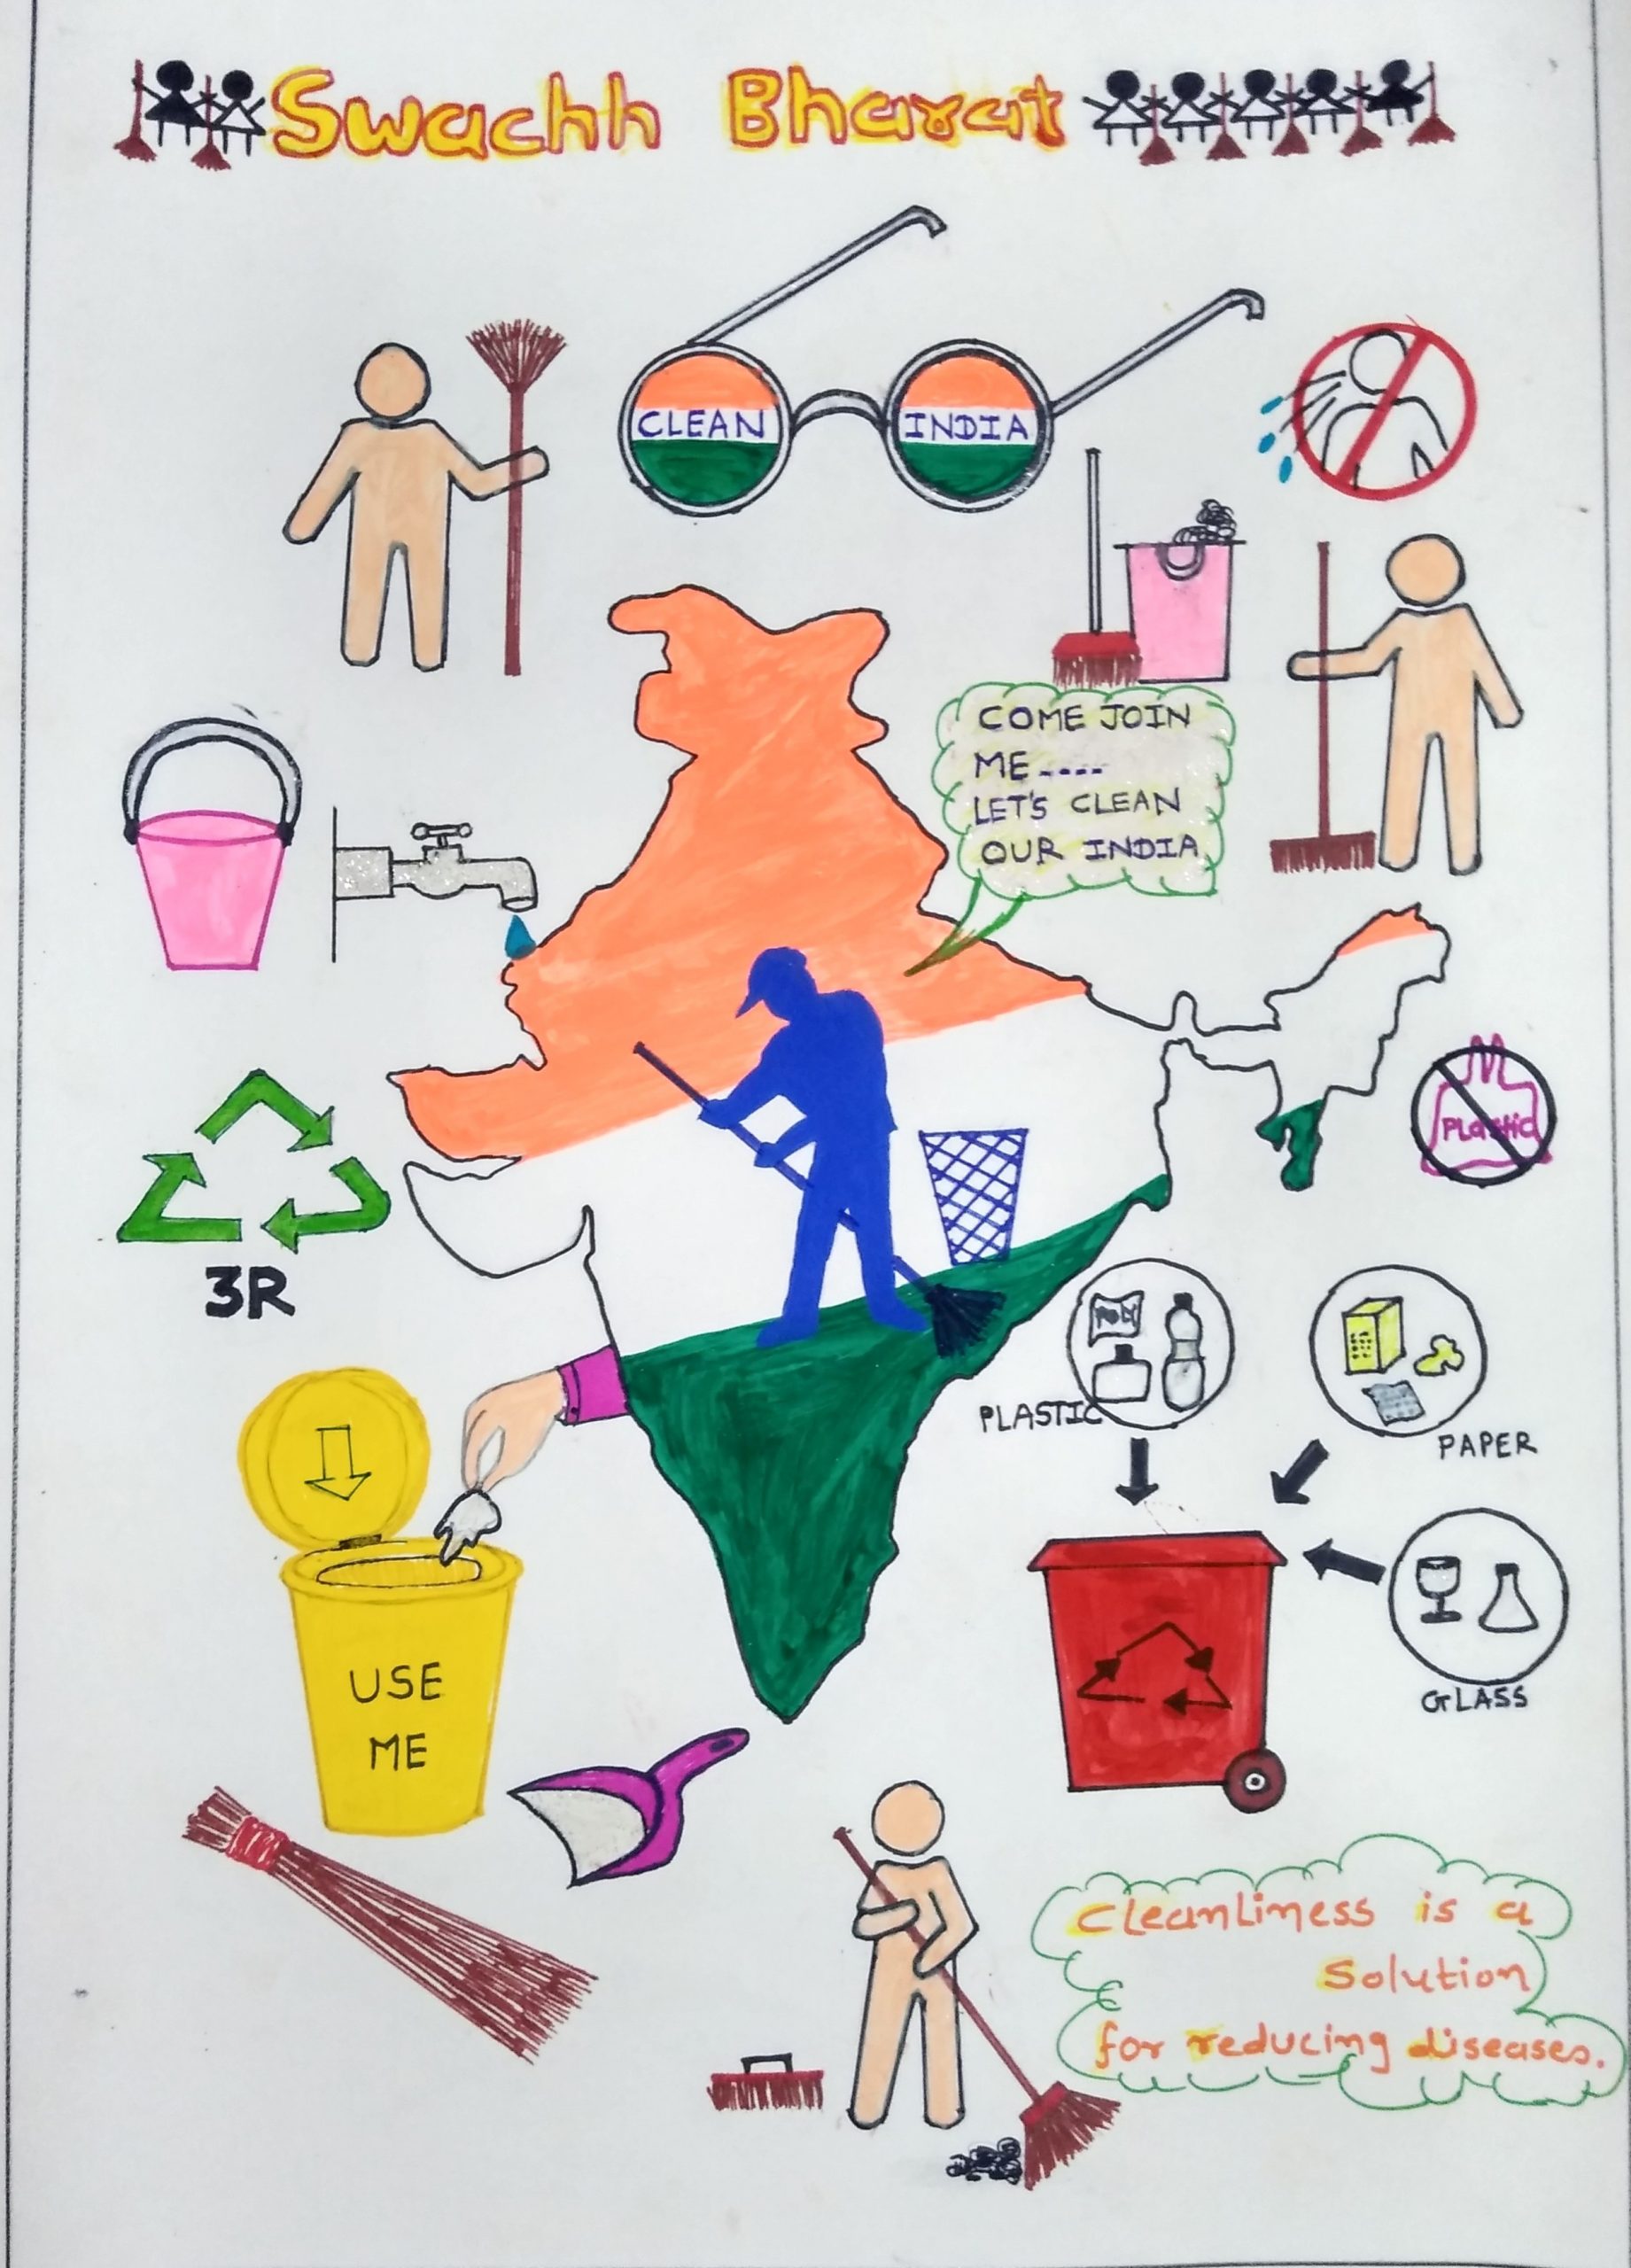 Swachh Bharat
CLEAN INDIA
COME JOIN
ME----
LET'S CLEAN
OUR INDIA
PLastic
3R
POLY
PLASTIC
PAPER
GLASS
USE
ME
cleanliness is a
solution
for reducing diseases.